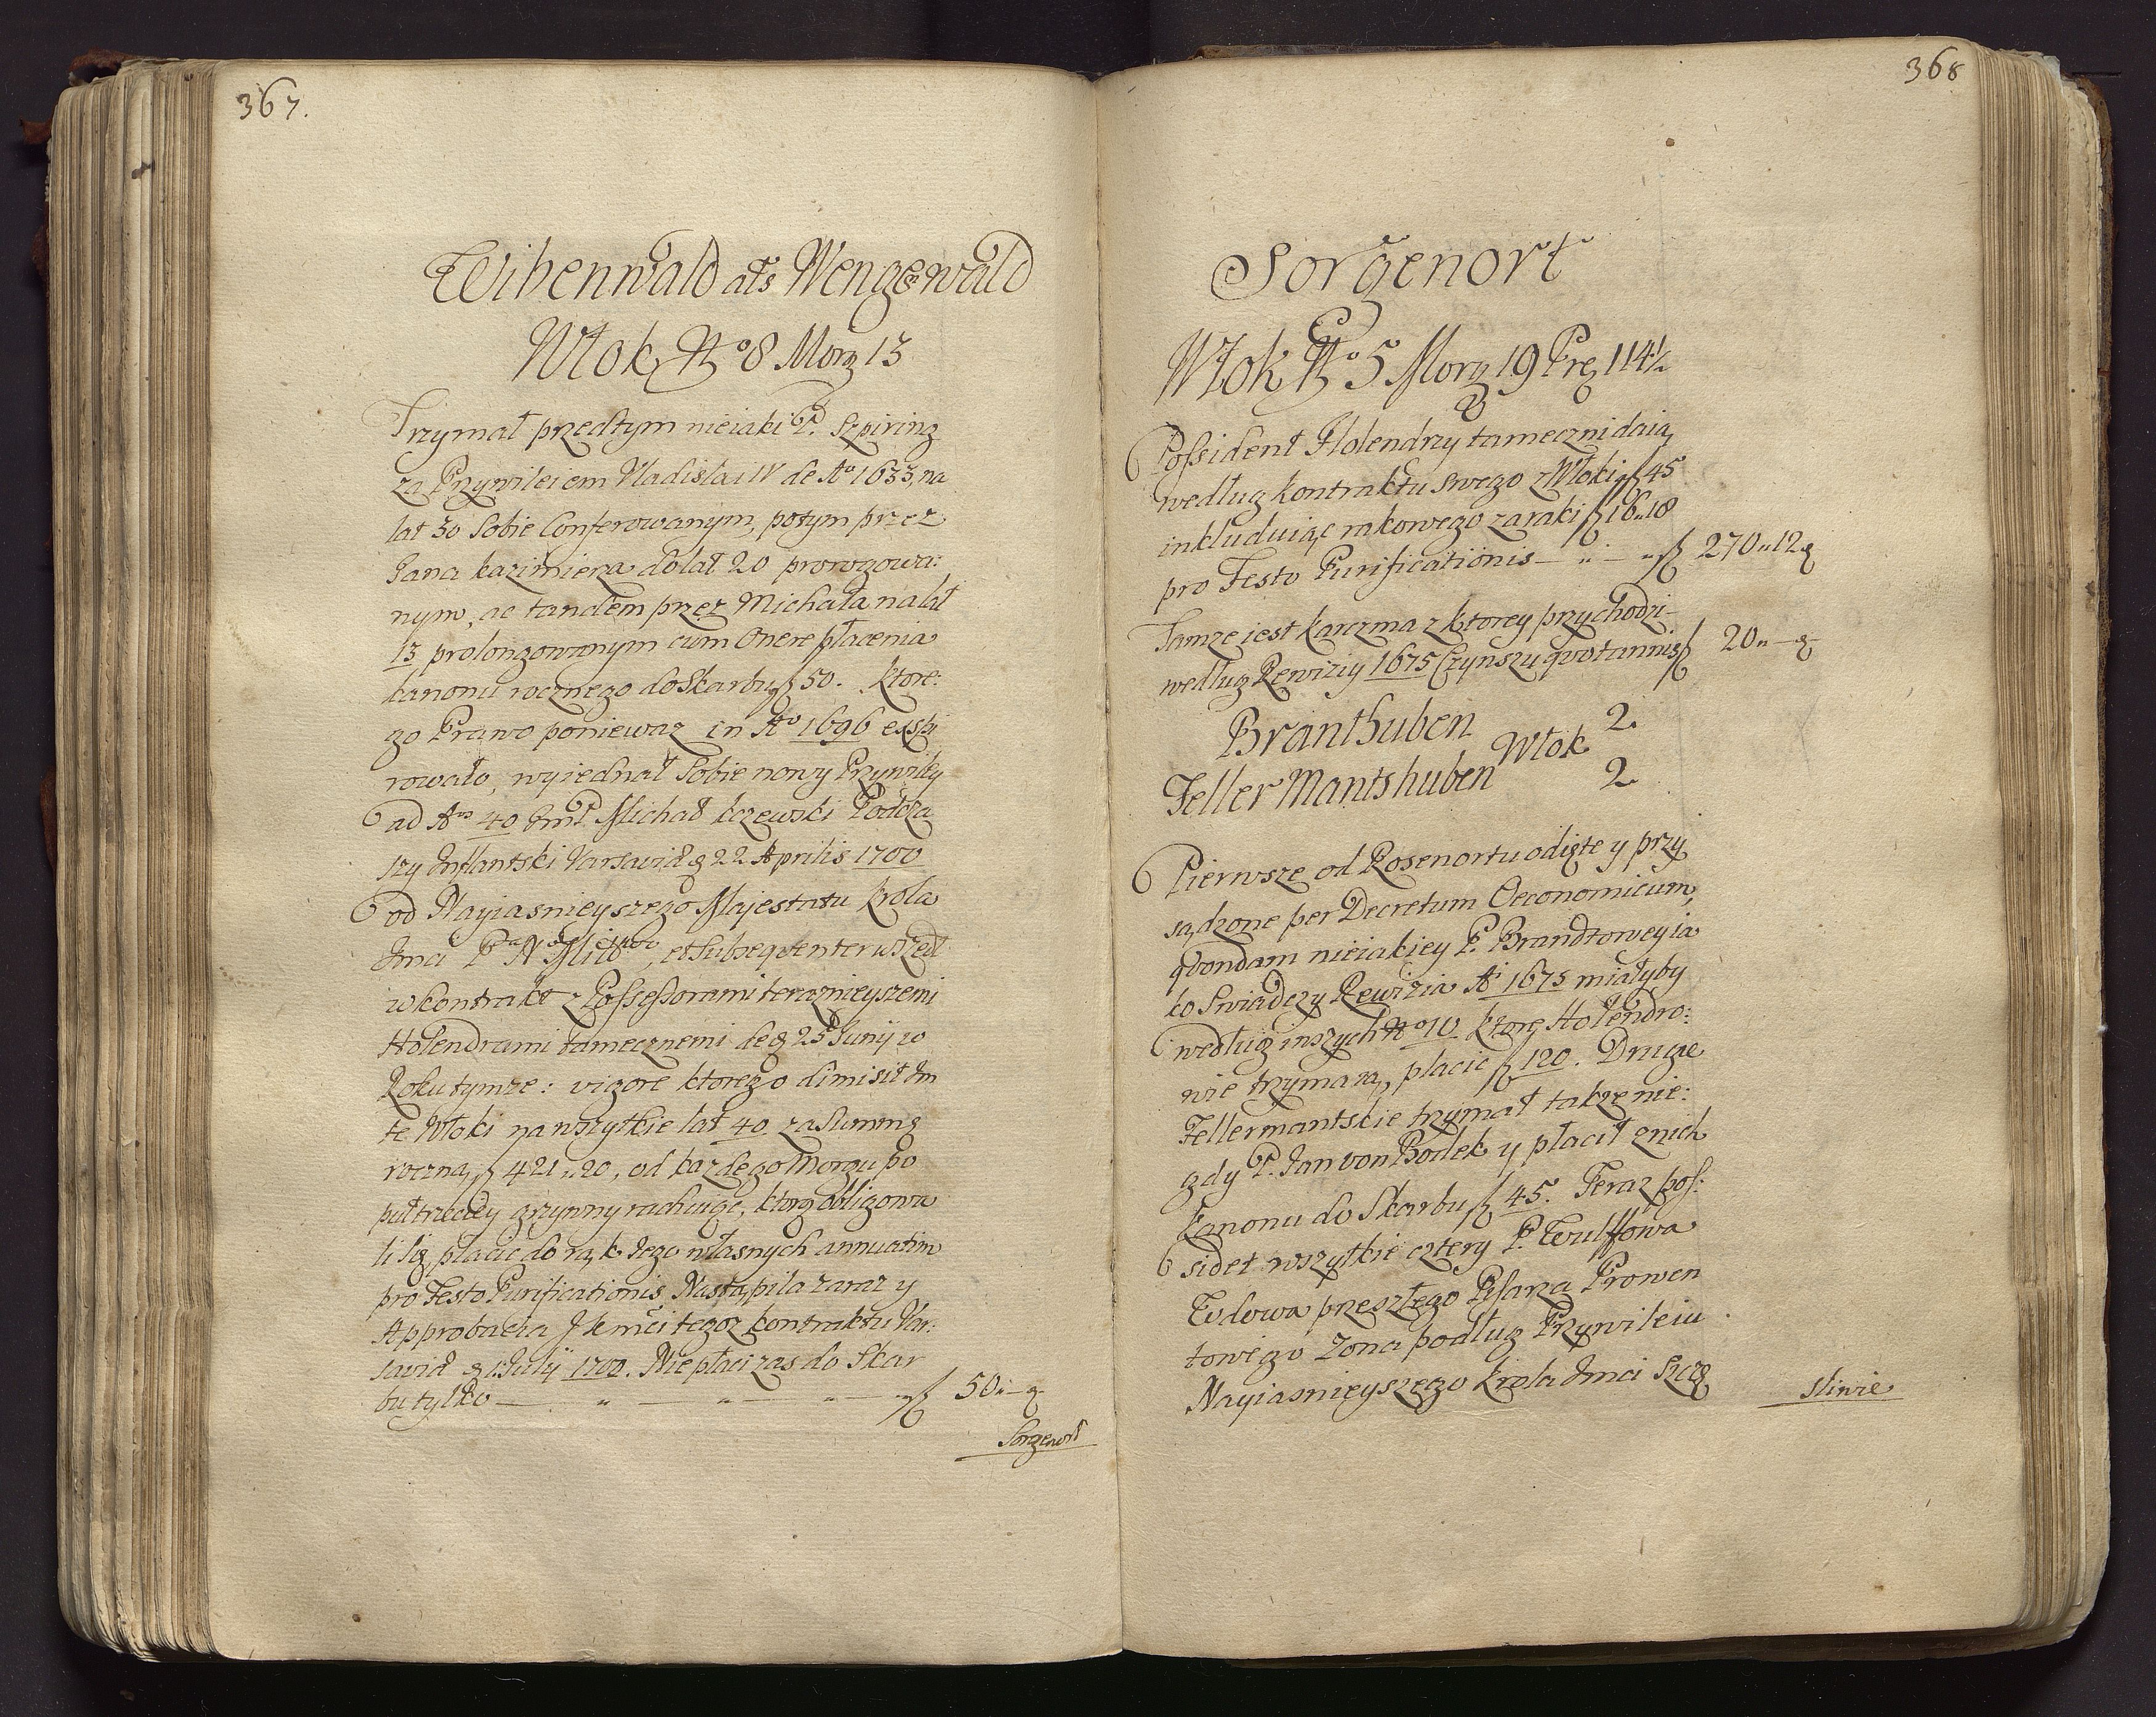 367.
Wibenwald als Wengewald
Włok No 8 Morg 13
Trzymał przedtym nieiaki P. Szpiring
za Przywileiem Vladislai IV de Ao 1633, na
lat 30 Sobie Conferowanym, potym przez
Jana kazimierza do lat 20 prorogowa:
nym, ac tandem przez Michała na lat
13 prolongowanym cum Onere płacenia
kanonu rocznego do Skarbu f 50. Ktore:
go Prawo poniewaz in Ao 1696 exspi
rowało, wyiednał Sobie nowy Przywiley
ad Ann 40 JmP Michał kczewski Podcza
szy Inflantski Varsaviæ 22 Aprilis 1700
od Nayiasnieyszego Majestatu krola
Jmci P N Miłto, et Subseqventer wszedł
w kontrakt z Possessorami teraznieyszemi
Holendrami tamecznemi de 25 Junij w
Roku tymze: vigore ktorego dimisit Im
te Włoki na wszytkie lat 40. za Summę
roczną f 421 " 20, od kazdego Morgu po
pułtrzeciey grzywny rachuiąc, ktorą obligowa
li się płacic do rąk Jego własnych annuatim
pro Festo Purificationis. Nastąpiła zaraz y
Approbacia J k mci tegoz kontraktu Var:
saviæ 1 Julij 1700. Nie płaci zas do Skar
bu tylko — " — " — " — f 50 " — g
Sorgenort
368
Sorgenort
Włok No 5 Morg 19 Prę 114½
Possident Holendrzy tameczni daią
według kontraktu swego z Włoki f 45
inkluduiąc rakowego za raki f 16 " 18
pro Festo Purificationis — " — " f 270 " 12 g
Tamze iest karczma z ktorey przychodzi
według Rewiziy 1675 Czynszu qvotannis f 20 " — g
Branthuben 2.
Włok
Feller Mantshuben 2
Pierwsze od Rosenortu odięte y przy
sądzone per Decretum Oeconomicum,
qvondam nieiakiey P. Brandtowey ia
ko Swiadczy Rewizia Ai 1675 miałyby
według inszych No 10 ktorę Holendro:
wie trzymaią, płacic f 120. Drugie
Fellermantskie trzymał takze nie:
gdy P. Jan von Bodek y płacił z nich
Kanonu do Skarbu f 45. Teraz pos:
sidet wszytkie cztery P. Wulffowa
Wdowa przeszłego Pisarza Prowen
towego Zona podług Przywileiu
Nayiasnieyszego krola Jmci Szczę
sliwie